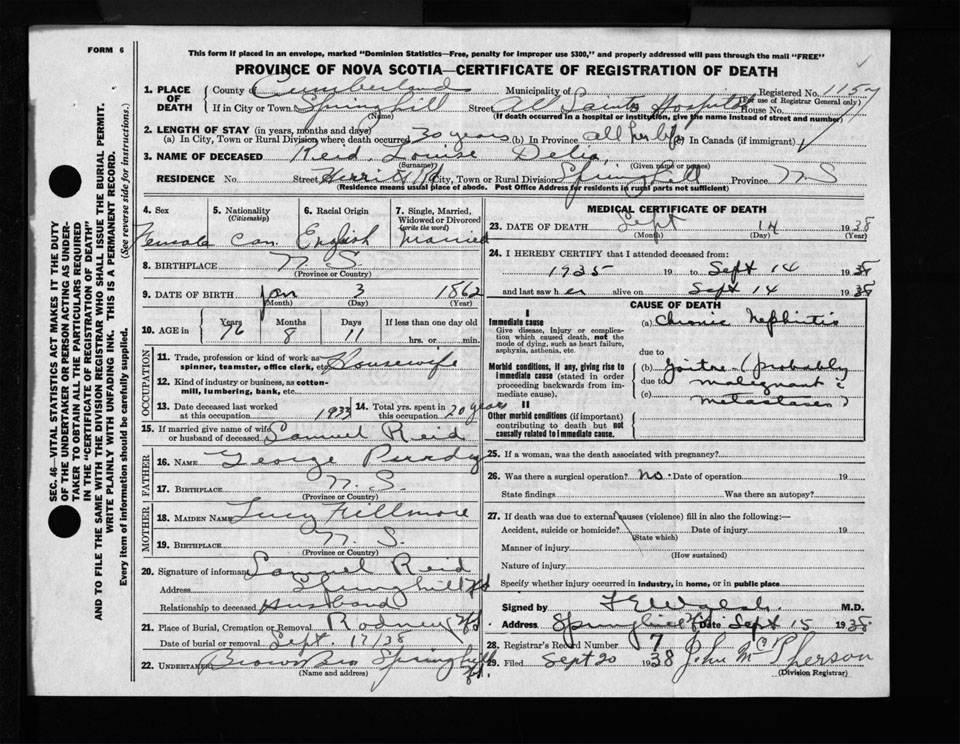 FORM 6
This form if placed in an envelope, marked "Dominion Statistics—Free, penalty for improper use $300," and properly addressed will pass through the mail "FREE"
PROVINCE OF NOVA SCOTIA—CERTIFICATE OF REGISTRATION OF DEATH
SEC. 46—VITAL STATISTICS ACT MAKES IT THE DUTY
OF THE UNDERTAKER OR PERSON ACTING AS UNDER-
TAKER TO OBTAIN ALL THE PARTICULARS REQUIRED
IN THE "CERTIFICATE OF REGISTRATION OF DEATH"
AND TO FILE THE SAME WITH THE DIVISION REGISTRAR WHO SHALL ISSUE THE BURIAL PERMIT.
WRITE PLAINLY WITH UNFADING INK. THIS IS A PERMANENT RECORD.
Every item of information should be carefully supplied. (See reverse side for instructions.)
1. PLACE OF DEATH County of Cumberland Municipality of Registered No. 1157
(For use of Registrar General only)
If in City or Town Springhill Street All Saints Hospital House No.
(Name) (If death occurred in a hospital or institution, give the name instead of street and number)
2. LENGTH OF STAY (in years, months and days)
(a) In City, Town or Rural Division where death occurred 30 years (b) In Province all her life (c) In Canada (if immigrant)
3. NAME OF DECEASED Reid, Louise Delia
(Surname) (Given name or names)
RESIDENCE No. Street Herritt Rd City, Town or Rural Division Springhill Province N S
(Residence means usual place of abode. Post Office Address for residents in rural parts not sufficient)
4. Sex Female
5. Nationality (Citizenship) Can.
6. Racial Origin English
7. Single, Married, Widowed or Divorced (write the word) Married
8. BIRTHPLACE N. S.
(Province or Country)
9. DATE OF BIRTH Jan 3 1862
(Month) (Day) (Year)
10. AGE in Years 76 Months 8 Days 11 If less than one day old hrs. or min.
OCCUPATION
11. Trade, profession or kind of work as spinner, teamster, office clerk, etc. Housewife
12. Kind of industry or business, as cotton-mill, lumbering, bank, etc.
13. Date deceased last worked at this occupation 1933
14. Total yrs. spent in this occupation 20 years
15. If married give name of wife or husband of deceased Samuel Reid
FATHER
16. NAME George Purdy
17. BIRTHPLACE N. S.
(Province or Country)
MOTHER
18. MAIDEN NAME Lucy Fillmore
19. BIRTHPLACE N. S.
(Province or Country)
20. Signature of informant Samuel Reid
Address Springhill NS
Relationship to deceased Husband
21. Place of Burial, Cremation or Removal Rodney NS
Date of burial or removal Sept 17/38
22. UNDERTAKER Brown Bro Springhill NS.
(Name and address)
MEDICAL CERTIFICATE OF DEATH
23. DATE OF DEATH Sept 14 1938
(Month) (Day) (Year)
24. I HEREBY CERTIFY that I attended deceased from:
1935 19 to Sept 14 1938
and last saw her alive on Sept 14 1938
CAUSE OF DEATH
I
Immediate cause
Give disease, injury or complication which caused death, not the mode of dying, such as heart failure, asphyxia, asthenia, etc.
(a) Chronic Nephritis
due to
Morbid conditions, if any, giving rise to immediate cause (stated in order proceeding backwards from immediate cause).
(b) Goitre (probably
due to malignant c
(c) metastases)
II
Other morbid conditions (if important) contributing to death but not causally related to immediate cause.
25. If a woman, was the death associated with pregnancy?
26. Was there a surgical operation? no. Date of operation 19
State findings Was there an autopsy?
27. If death was due to external causes (violence) fill in also the following:—
Accident, suicide or homicide? Date of injury 19
(State which)
Manner of injury
(How sustained)
Nature of injury
Specify whether injury occurred in industry, in home, or in public place
Signed by F E Walsh. M.D.
Address Springhill NS Date Sept 15 1938
28. Registrar's Record Number 7
29. Filed Sept 20 1938 John McPherson
(Division Registrar)